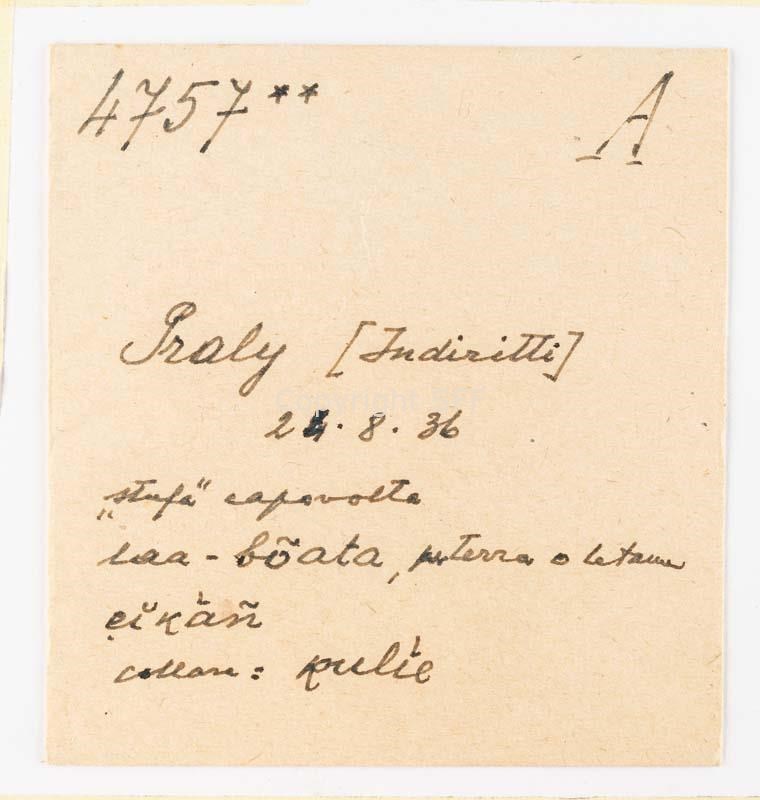 4757** A
Praly [Indiritti]
24.8.36
„stufa" capovolta
laa-bõata, per terra o letame
ei̯kàñ
collare: kulìe